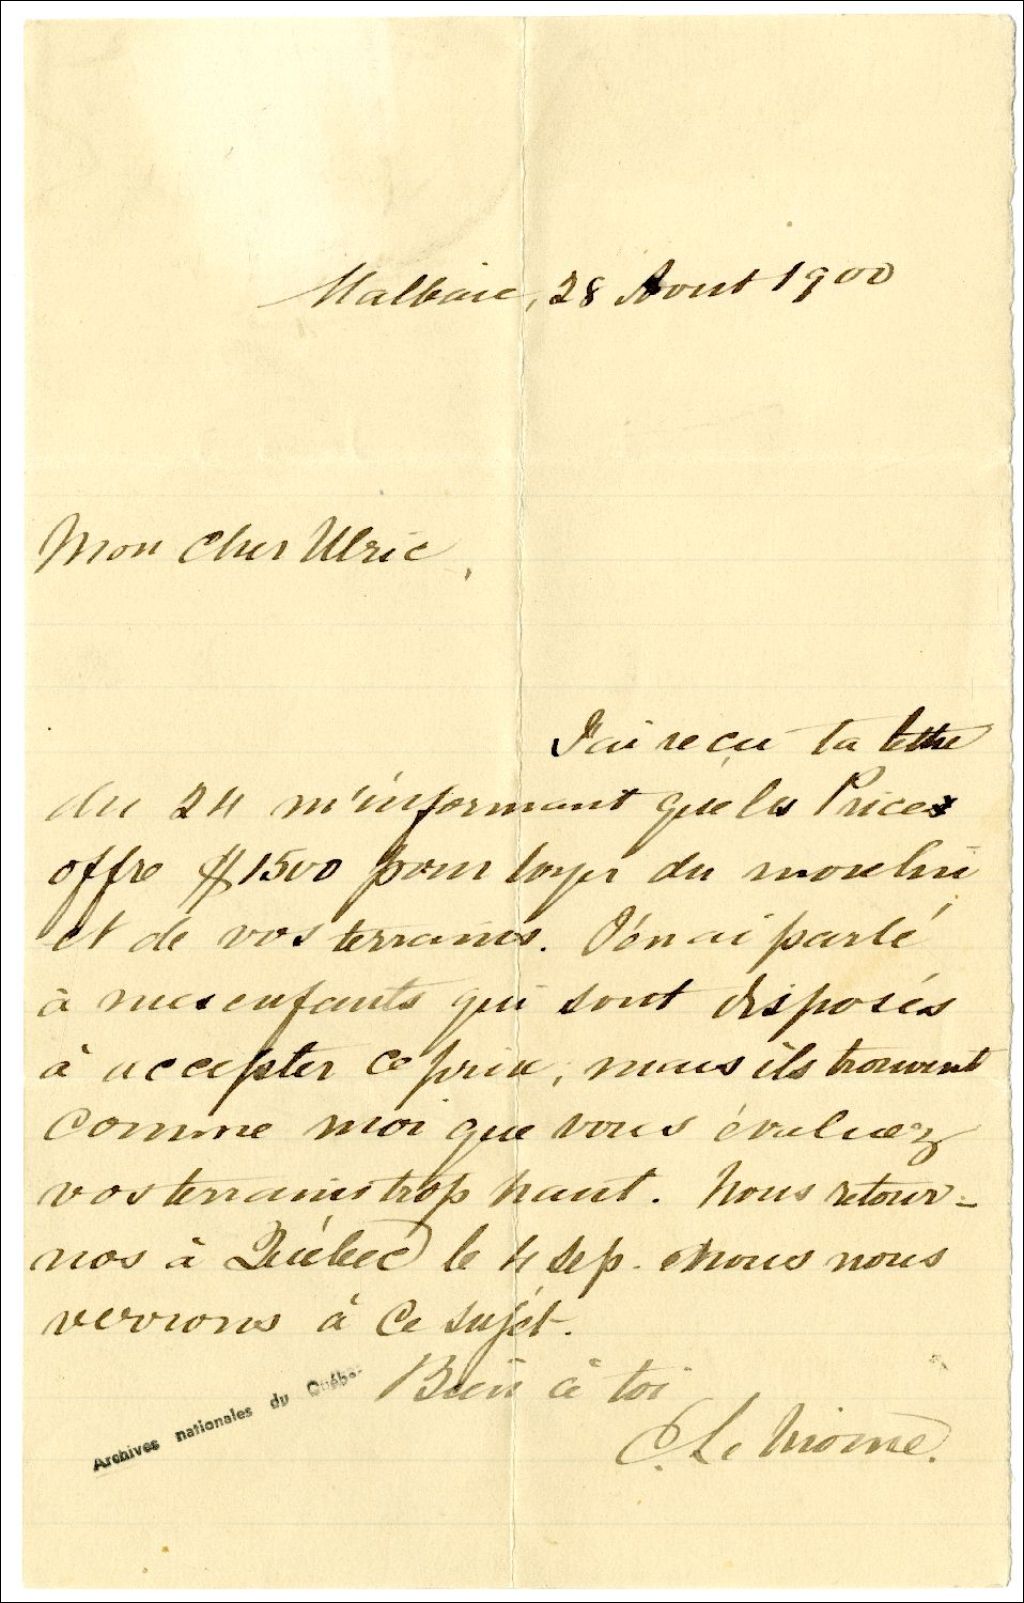 Malbaie, 28 Aout 1900
Mon cher Ulric,
J'ai reçu ta lettre
du 24 m'informant que les Prices
offre $1500 pour loyer du moulin
et de vos terrains. J'en ai parlé
à mes enfants qui sont disposés
à accepter ce prix, mais ils trouvent
comme moi que vous évaluez
vos terrains trop haut. Nous retour-
nos à Québec le 4 sep. Nous nous
verrons à ce sujet.
Bien à toi
Archives nationales du Québec
Le Moine.